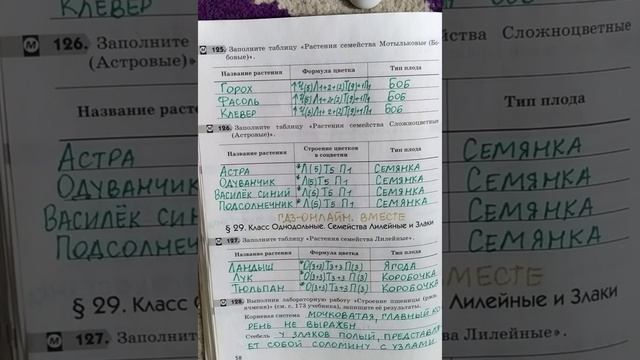 КЛЕВЕР
125. Заполните таблицу «Растения семейства Мотыльковые (Бобовые)».
Название растения Формула цветка Тип плода
ГОРОХ ↑Ч(5)Л1+2+(2)Т(9)+1П1 БОБ
ФАСОЛЬ ↑Ч(5)Л1+2+(2)Т(9)+1П1 БОБ
КЛЕВЕР ↑Ч(5)Л1+2+(2)Т(9)+1П1 БОБ
126. Заполните таблицу «Растения семейства Сложноцветные
(Астровые)».
Название растения Строение цветков
в соцветии Тип плода
АСТРА *Л(5)Т5 П1 СЕМЯНКА
ОДУВАНЧИК *Л(5)Т5 П1 СЕМЯНКА
ВАСИЛЁК СИНИЙ *Л(5)Т5 П1 СЕМЯНКА
ПОДСОЛНЕЧНИК *Л(5)Т5 П1 СЕМЯНКА
ГДЗ-ОНЛАЙН. ВМЕСТЕ
§ 29. Класс Однодольные. Семейства Лилейные и Злаки
127. Заполните таблицу «Растения семейства Лилейные».
Название растения Формула цветка Тип плода
ЛАНДЫШ *О(3+3)Т3+3 П(3) ЯГОДА
ЛУК *О(3+3)Т3+3 П(3) КОРОБОЧКА
ТЮЛЬПАН *О(3+3)Т3+3 П(3) КОРОБОЧКА
128. Выполни лабораторную работу «Строение пшеницы (ржи,
ячменя)» (см. с. 173 учебника), запишите её результаты.
Корневая система МОЧКОВАТАЯ, ГЛАВНЫЙ КО
РЕНЬ НЕ ВЫРАЖЕН
Стебель У ЗЛАКОВ ПОЛЫЙ, ПРЕДСТАВЛЯ
ЕТ СОБОЙ СОЛОМИНУ С УЗЛАМИ.
58
126. Заполните
(Астровые)».
Название растения
АСТРА
ОДУВАНЧИК
ВАСИЛЁК СИН
ПОДСОЛНЕ
§ 29. Класс
127. Заполните
Сложноцветные
Тип плода
СЕМЯНКА
СЕМЯНКА
СЕМЯНКА
СЕМЯНКА
МЕСТЕ
Лилейные и Злаки
йные».